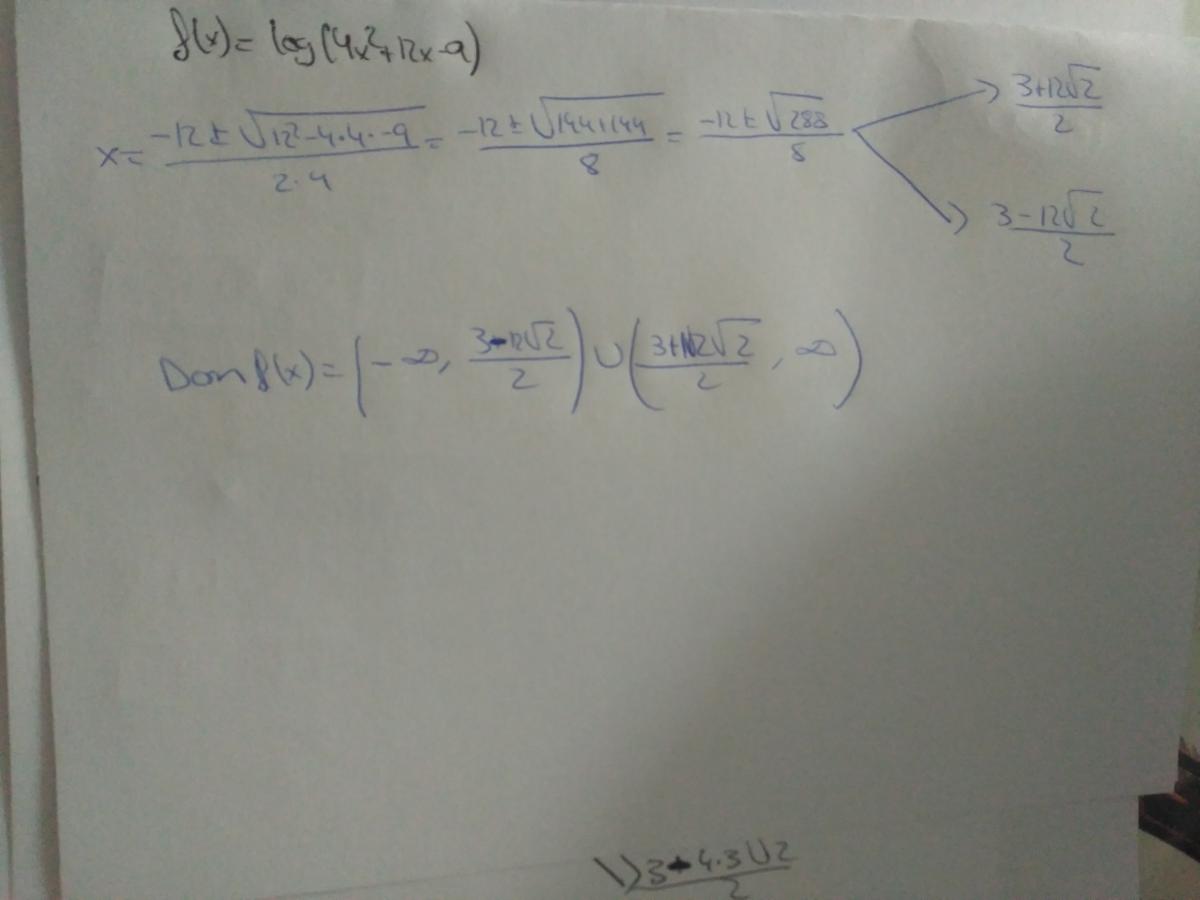 f(x)= log(4x²+12x-9)
x= (-12 ± √(12²-4·4·-9))/(2·4) = (-12 ± √(144+144))/8 = (-12 ± √288)/8 → (3+12√2)/2
→ (3-12√2)/2
Dom f(x)= (-∞, (3-12√2)/2) ∪ ((3+12√2)/2, ∞)
(3-4·3√2)/2